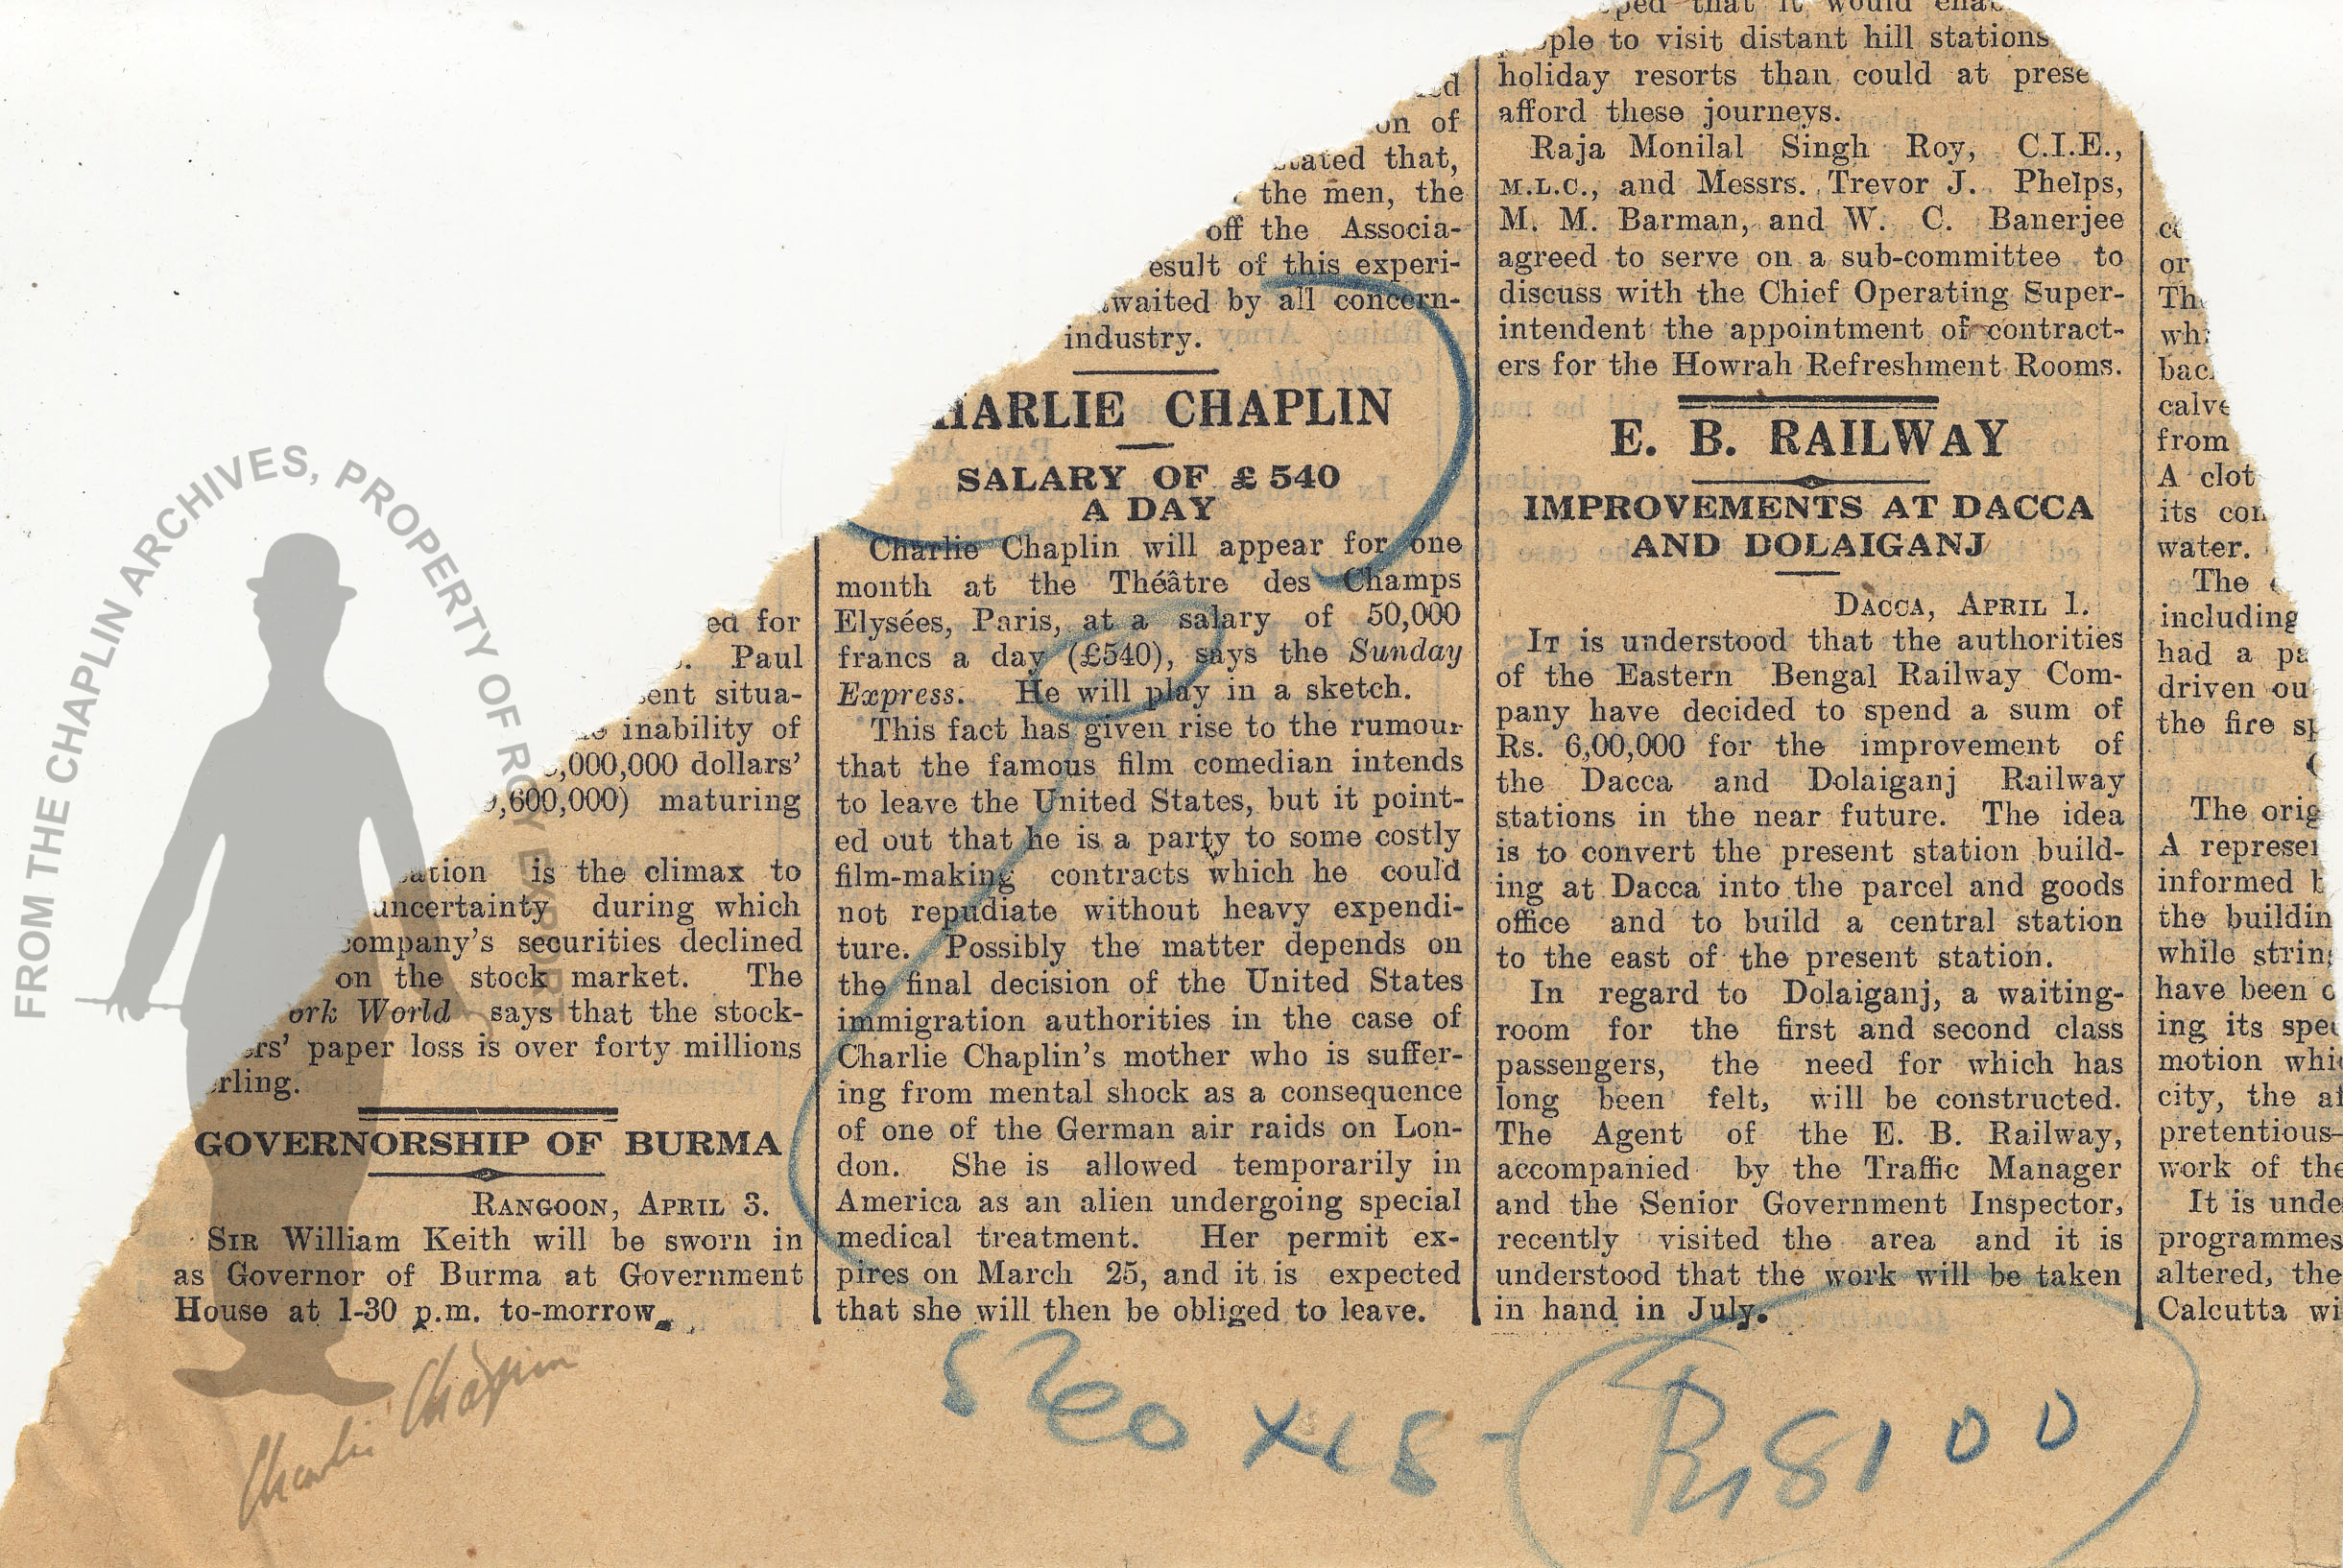 ed for
Paul
sent situa-
inability of
,000,000 dollars'
,600,000) maturing
is the climax to
uncertainty during which
company's securities declined
on the stock market. The
ork World says that the stock-
ers' paper loss is over forty millions
erling.
GOVERNORSHIP OF BURMA
RANGOON, APRIL 3.
SIR William Keith will be sworn in
as Governor of Burma at Government
House at 1-30 p.m. to-morrow.
on of
stated that,
the men, the
off the Associa-
esult of this experi-
waited by all concern-
industry.
HARLIE CHAPLIN
SALARY OF £540
A DAY
Charlie Chaplin will appear for one
month at the Théâtre des Champs
Elysées, Paris, at a salary of 50,000
francs a day (£540), says the Sunday
Express. He will play in a sketch.
This fact has given rise to the rumour
that the famous film comedian intends
to leave the United States, but it point-
ed out that he is a party to some costly
film-making contracts which he could
not repudiate without heavy expendi-
ture. Possibly the matter depends on
the final decision of the United States
immigration authorities in the case of
Charlie Chaplin's mother who is suffer-
ing from mental shock as a consequence
of one of the German air raids on Lon-
don. She is allowed temporarily in
America as an alien undergoing special
medical treatment. Her permit ex-
pires on March 25, and it is expected
that she will then be obliged to leave.
that it would
to visit distant hill stations
holiday resorts than could at prese
afford these journeys.
Raja Monilal Singh Roy, C.I.E.,
M.L.C., and Messrs. Trevor J. Phelps,
M. M. Barman, and W. C. Banerjee
agreed to serve on a sub-committee to
discuss with the Chief Operating Super-
intendent the appointment of contract-
ers for the Howrah Refreshment Rooms.
E. B. RAILWAY
IMPROVEMENTS AT DACCA
AND DOLAIGANJ
DACCA, APRIL 1.
IT is understood that the authorities
of the Eastern Bengal Railway Com-
pany have decided to spend a sum of
Rs. 6,00,000 for the improvement of
the Dacca and Dolaiganj Railway
stations in the near future. The idea
is to convert the present station build-
ing at Dacca into the parcel and goods
office and to build a central station
to the east of the present station.
In regard to Dolaiganj, a waiting-
room for the first and second class
passengers, the need for which has
long been felt, will be constructed.
The Agent of the E. B. Railway,
accompanied by the Traffic Manager
and the Senior Government Inspector,
recently visited the area and it is
understood that the work will be taken
in hand in July.
or
Th
wh
bac
calve
from
A clot
its con
water.
The
including
had a pa
driven ou
the fire sp
The orig
A represe
informed
the buildin
while strin
have been
ing its spe
motion whi
city, the
pretentious-
work of the
It is unde
programmes
altered, the
Calcutta wi
x 15
8100
FROM THE CHAPLIN ARCHIVES, PROPERTY OF ROY EXPORT
Charlie Chaplin